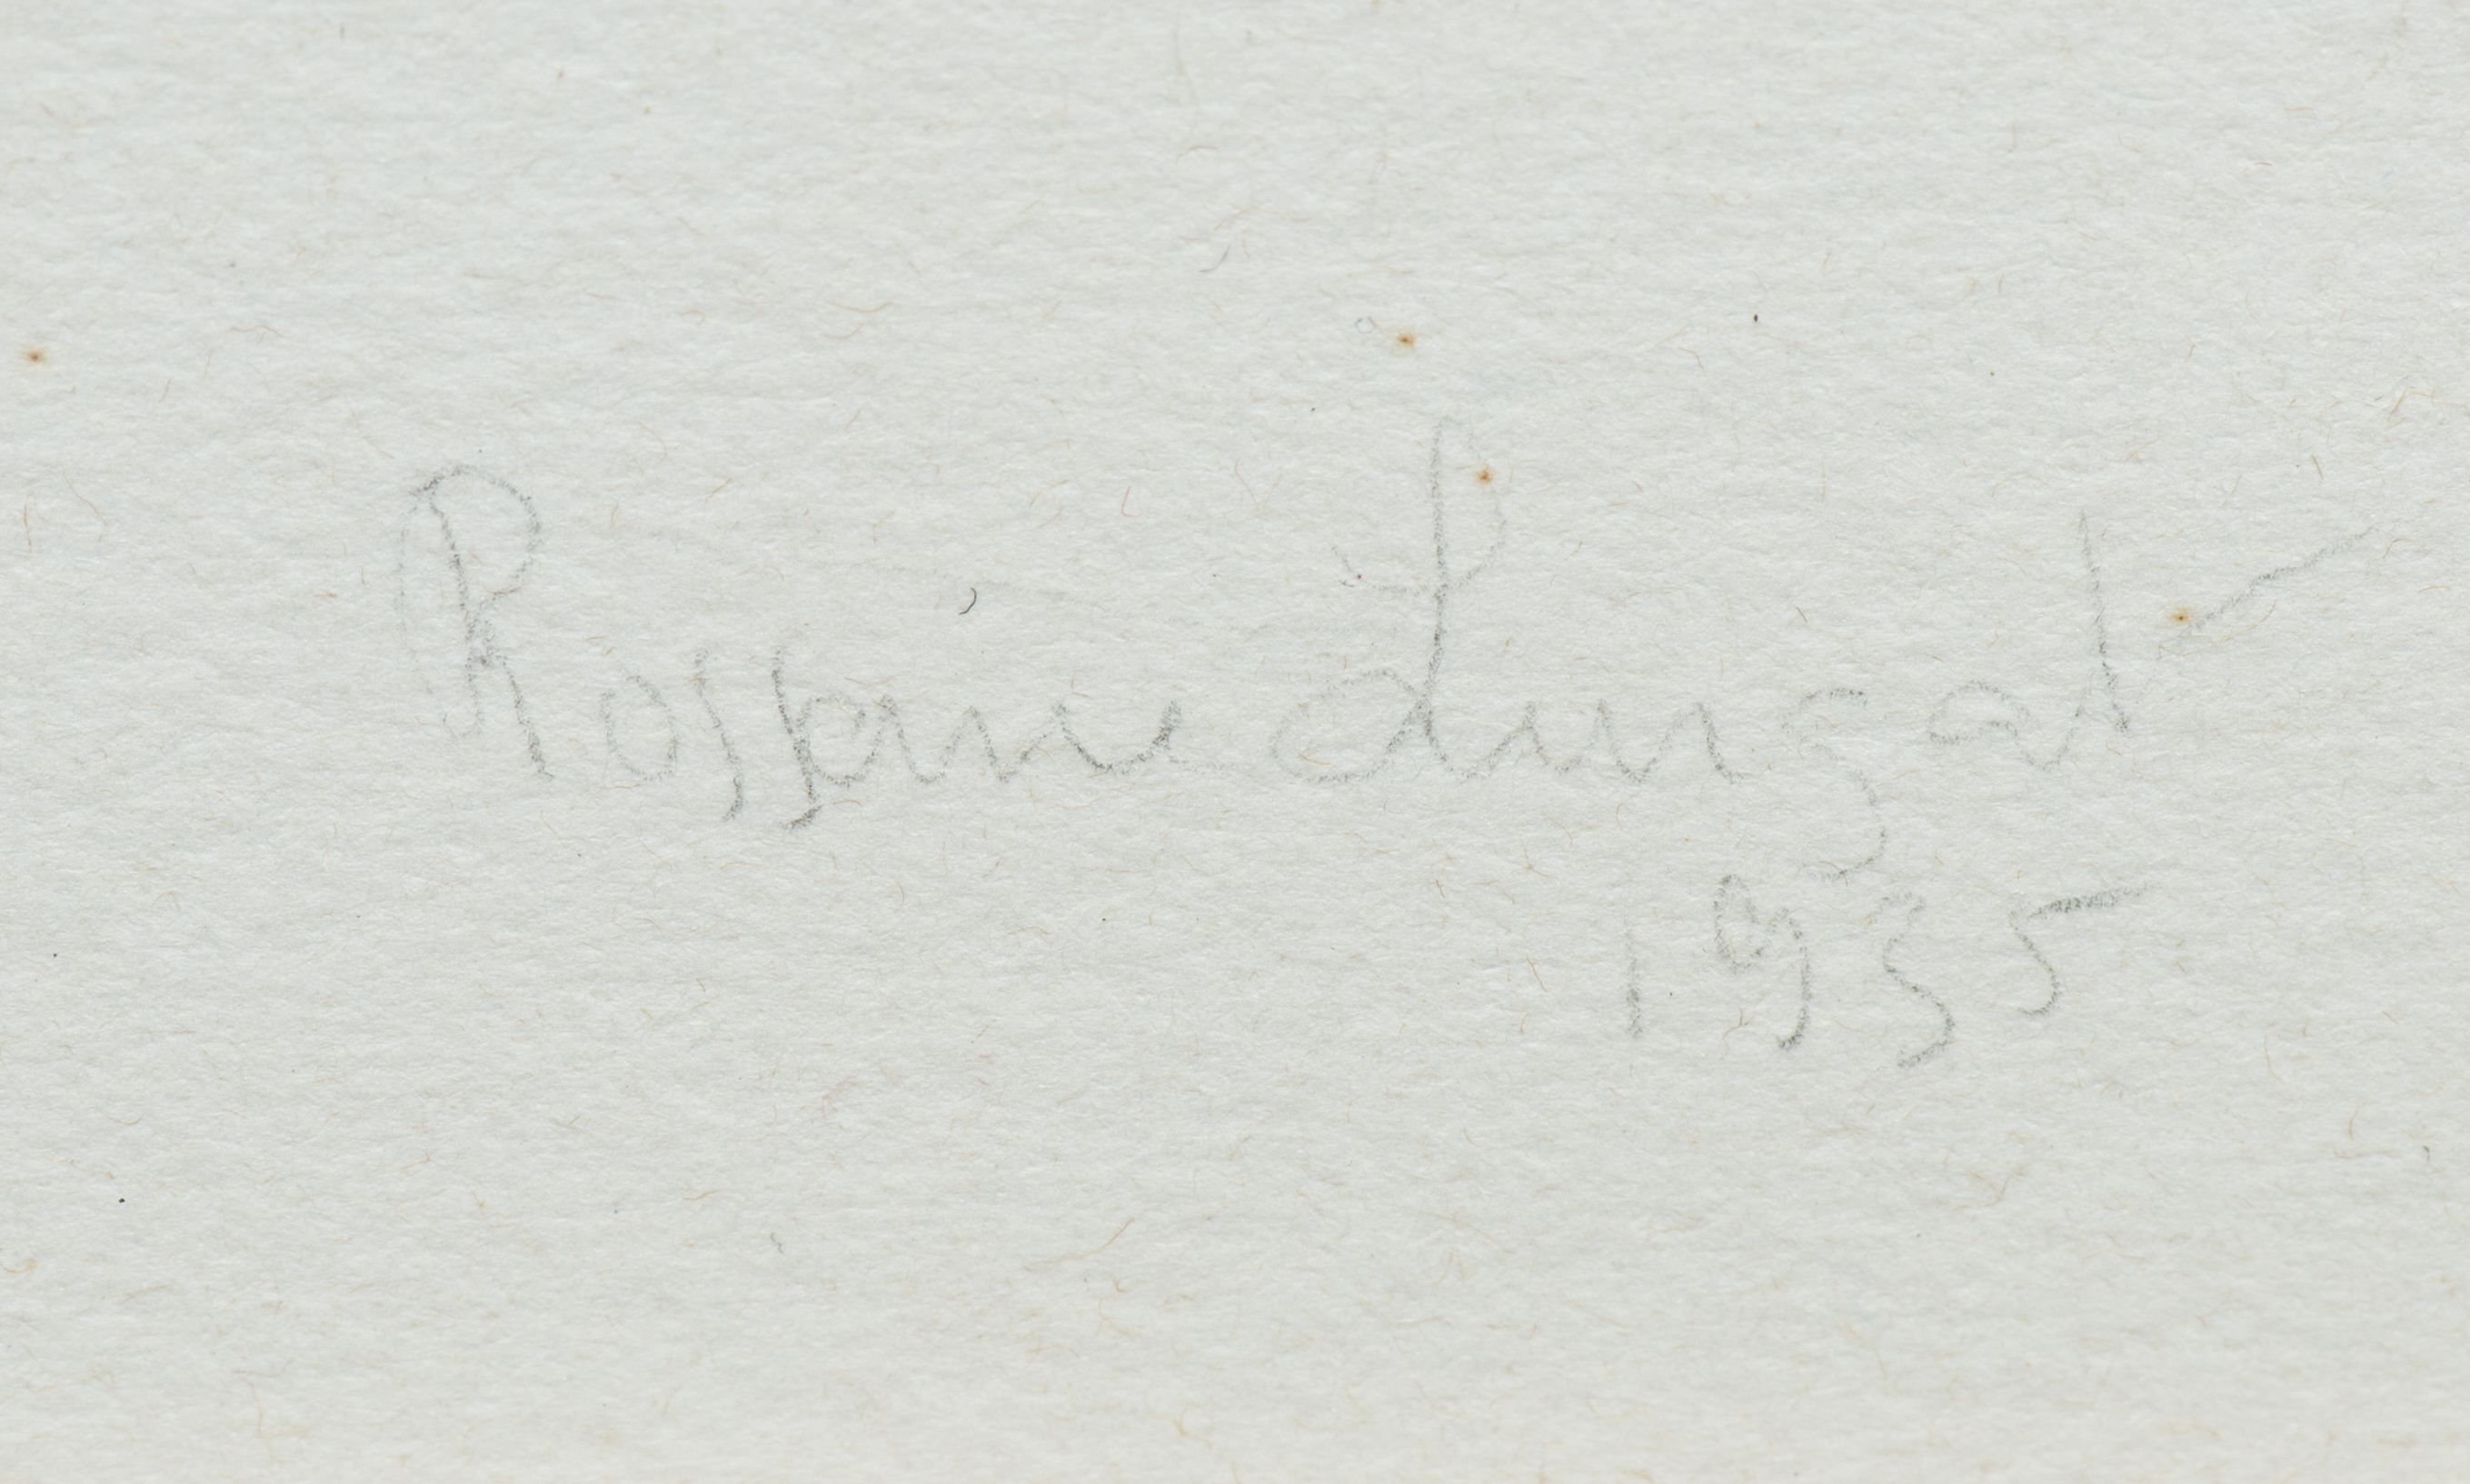 Rossine Lungat
1935